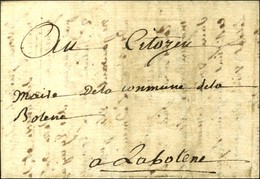 Au Citoyen
Maire De la conmune de la
Bolene
a Labolene